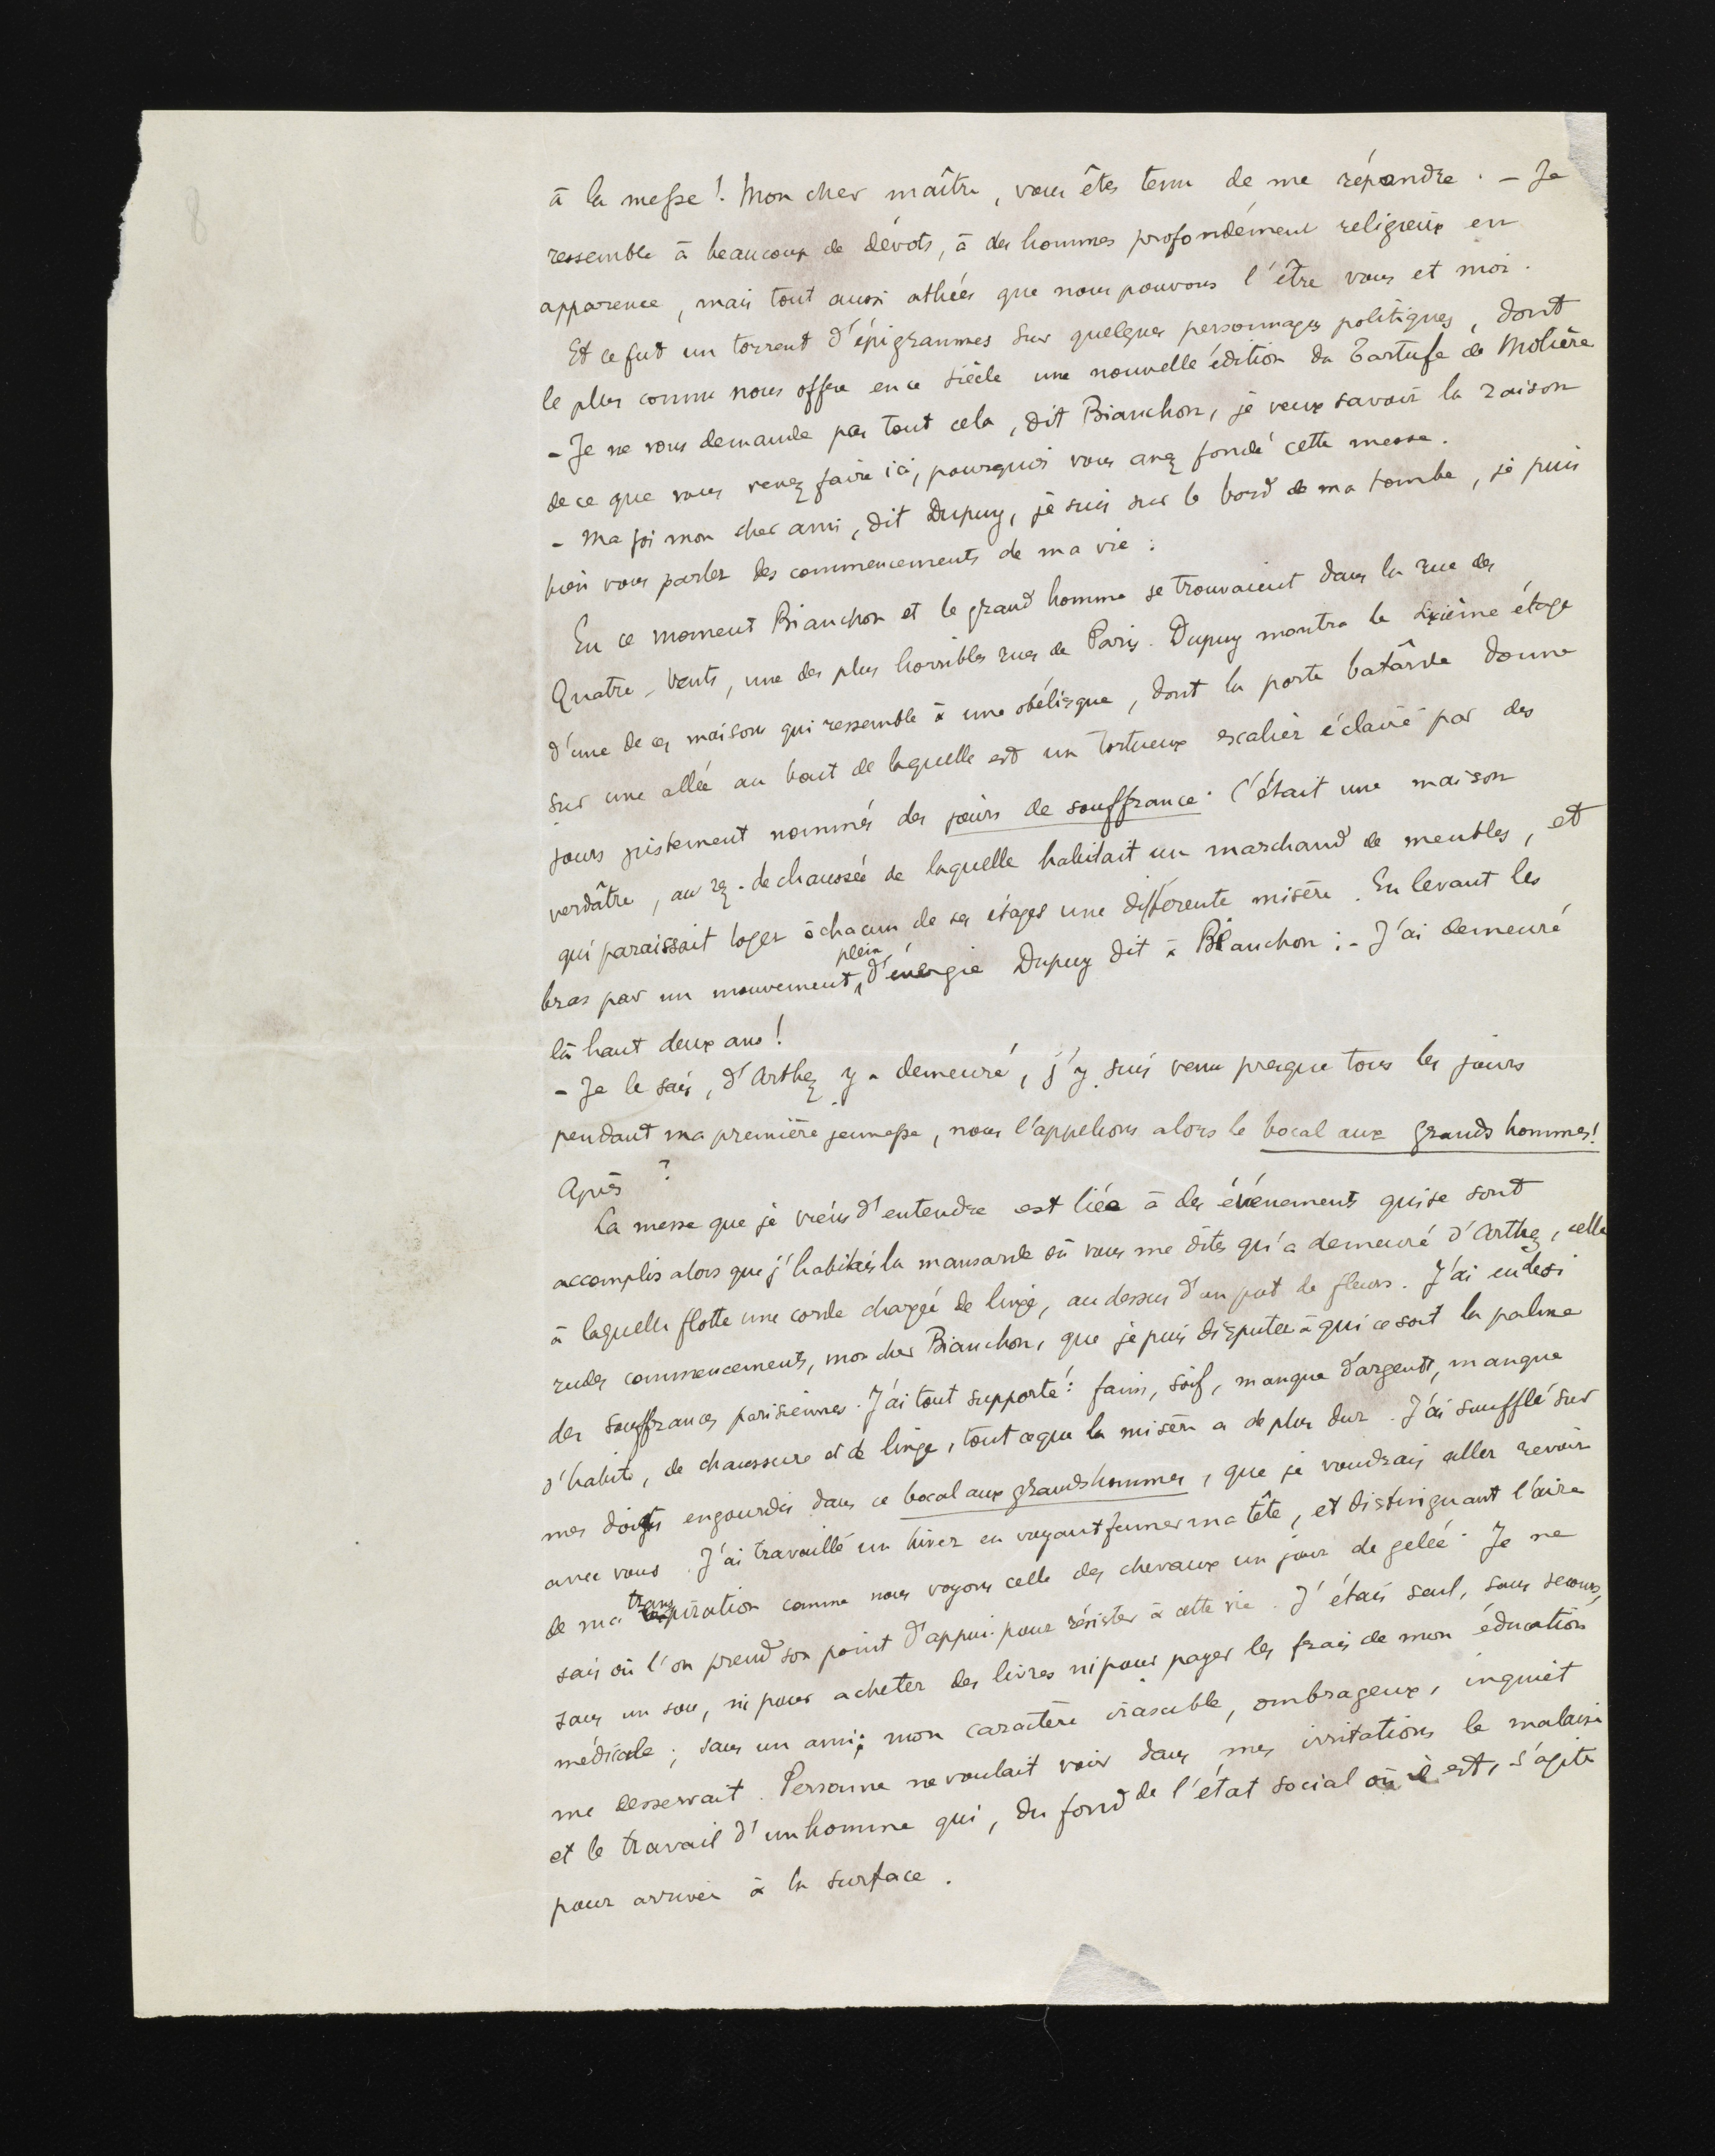 8
à la messe ! Mon cher maître, vous êtes tenu de me répondre. – Je
ressemble à beaucoup de dévots, à des hommes profondément religieux en
apparence, mais tout aussi athées que nous pouvons l'être vous et moi.
Et ce fut un torrent d'épigrammes sur quelques personnages politiques, dont
le plus connu nous offre en ce siècle une nouvelle édition du Tartufe de Molière
– Je ne vous demande pas tout cela, dit Bianchon, je veux savoir la raison
de ce que vous venez faire ici, pourquoi vous avez fondé cette messe.
– Ma foi mon cher ami, dit Dupuy, je suis sur le bord de ma tombe, je puis
bien vous parler des commencements de ma vie :
En ce moment Bianchon et le grand homme se trouvaient dans la rue des
Quatre-Vents, une des plus horribles rues de Paris. Dupuy montra le sixième étage
d'une de ces maisons qui ressemble à une obélisque, dont la porte batârde donne
sur une allée au bout de laquelle est un tortueux escalier éclairé par des
jours justement nommés des jours de souffrance. C'était une maison
verdâtre, au rez-de chaussée de laquelle habitait un marchand de meubles, et
qui paraissait loger à chacun de ses étages une différente misère. En levant les
bras par un mouvement plein d'énergie Dupuy dit à Bianchon : – J'ai demeuré
là haut deux ans !
– Je le sais, d'Arthez y a demeuré, j'y suis venu presque tous les jours
pendant ma première jeunesse, nous l'appelions alors le bocal aux grands hommes !
Après ?
La messe que je viens d'entendre est liée à des événements qui se sont
accomplis alors que j'habitais la mansarde où vous me dites qu'a demeuré d'Arthez, celle
à laquelle flotte une corde chargée de linge, au dessus d'un pot de fleurs. J'ai eu de si
rudes commencements, mon cher Bianchon, que je puis disputer à qui ce soit la palme
des souffrances parisiennes. J'ai tout supporté : faim, soif, manque d'argent, manque
d'habits, de chaussure et de linge, tout ce que la misère a de plus dur. J'ai soufflé sur
mes doigts engourdis dans ce bocal aux grands hommes, que je voudrais aller revoir
avec vous. J'ai travaillé un hiver en voyant fumer ma tête, et distinguant l'aire
de ma transpiration comme nous voyons celle des chevaux un jour de gelée. Je ne
sais où l'on prend son point d'appui pour résister à cette vie. J'étais seul, sans secours,
sans un sou, ni pour acheter des livres ni pour payer les frais de mon éducation
médicale ; sans un ami ; mon caractère irascible, ombrageux, inquiet
me desservait. Personne ne voulait voir dans mes irritations le malaise
et le travail d'un homme qui, du fond de l'état social où il est, s'agite
pour arriver à la surface.